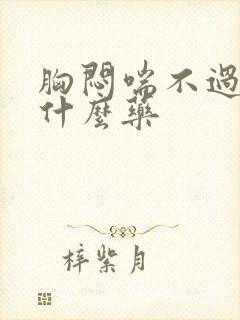 胸悶喘不過
什麼藥
梓紫月